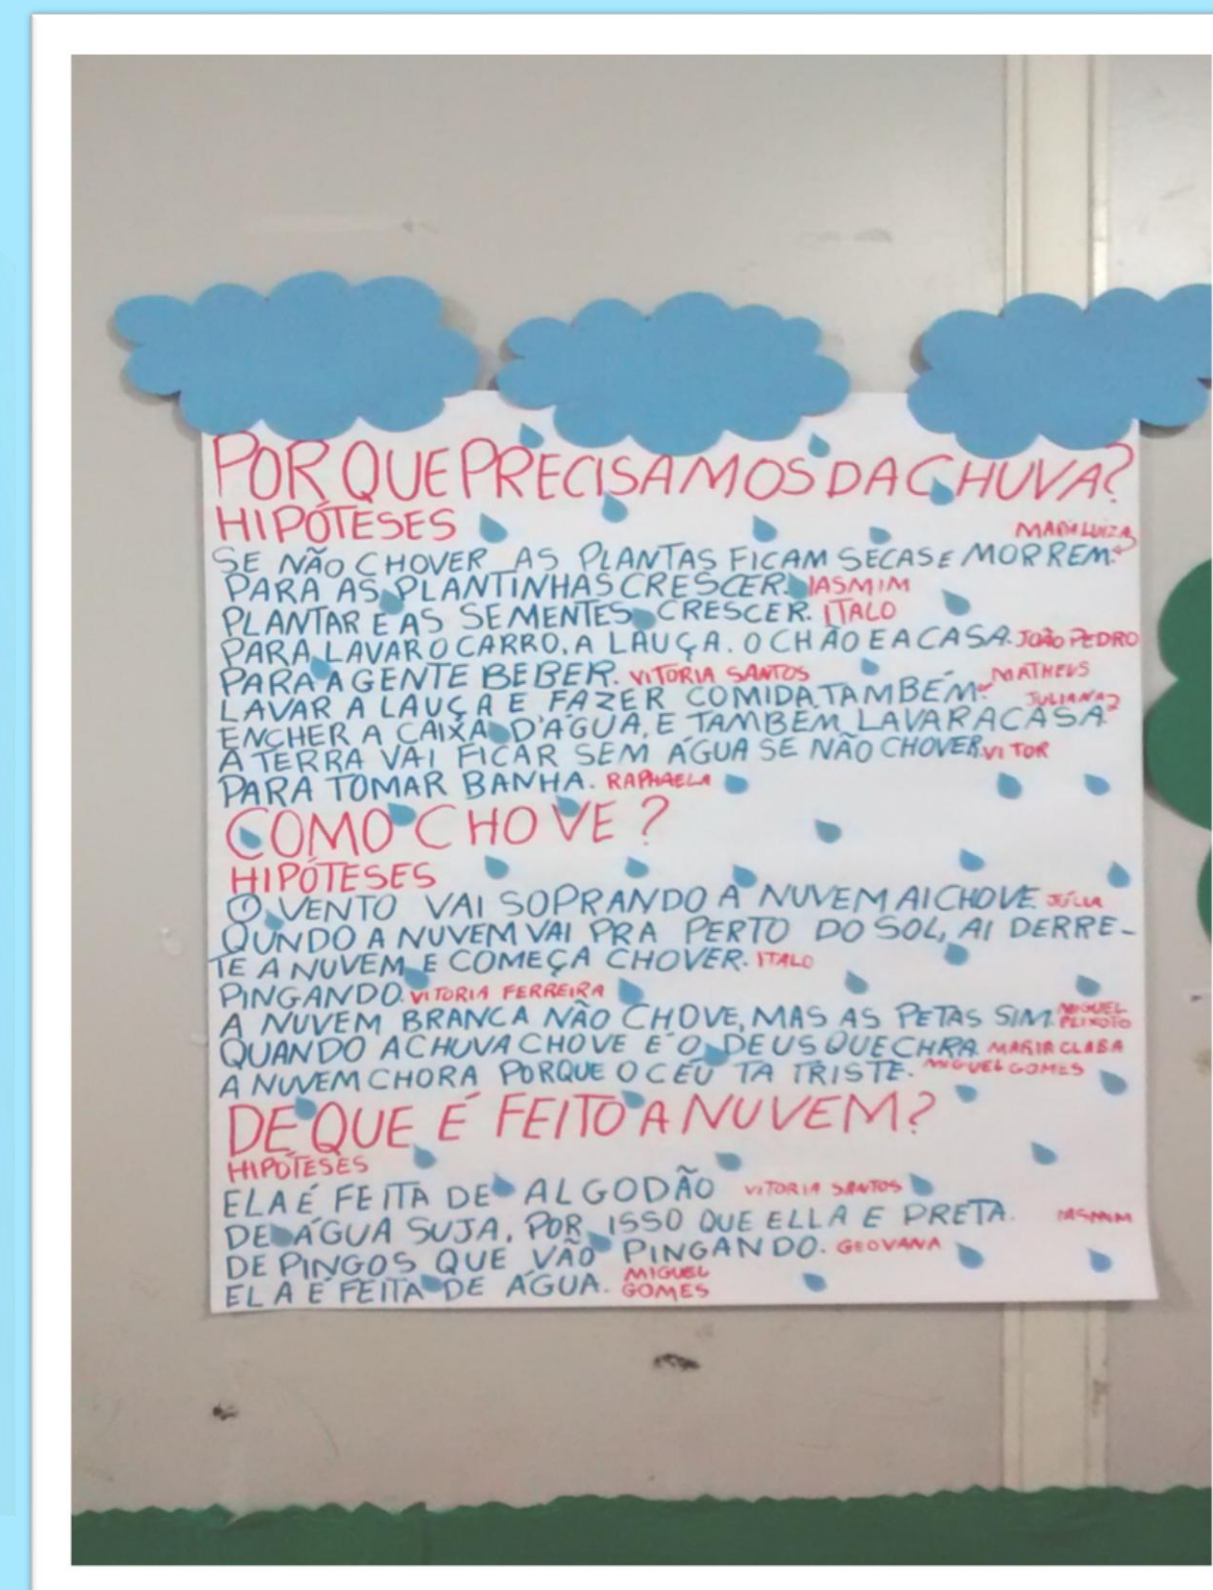 POR QUE PRECISAMOS DA CHUVA?
HIPÓTESES
MARIA LUIZA
SE NÃO CHOVER AS PLANTAS FICAM SECAS E MORREM.
PARA AS PLANTINHAS CRESCER. IASMIM
PLANTAR E AS SEMENTES CRESCER. ITALO
PARA LAVAR O CARRO, A LAUÇA. O CHÃO E A CASA. JOÃO PEDRO
PARA A GENTE BEBER. VITORIA SANTOS MATHEUS
LAVAR A LAUÇA E FAZER COMIDA TAMBÉM. JULIANA
ENCHER A CAIXA D'ÁGUA, E TAMBÉM LAVAR A CASA
A TERRA VAI FICAR SEM ÁGUA SE NÃO CHOVER. VITOR
PARA TOMAR BANHA. RAPHAELA
COMO CHOVE?
HIPÓTESES
O VENTO VAI SOPRANDO A NUVEM AI CHOVE. JÚLIA
QUNDO A NUVEM VAI PRA PERTO DO SOL, AI DERRE-
TE A NUVEM E COMEÇA CHOVER. ITALO
PINGANDO. VITORIA FERREIRA
A NUVEM BRANCA NÃO CHOVE, MAS AS PETAS SIM. MIGUEL PEIXOTO
QUANDO A CHUVA CHOVE É O DEUS QUE CHRA MARIA CLARA
A NUVEM CHORA PORQUE O CÉU TA TRISTE. MIGUEL GOMES
DE QUE É FEITO A NUVEM?
HIPÓTESES
ELA É FEITA DE ALGODÃO VITORIA SANTOS
DE ÁGUA SUJA, POR ISSO QUE ELLA E PRETA. IASMIM
DE PINGOS QUE VÃO PINGANDO. GEOVANA
ELA É FEITA DE ÁGUA. MIGUEL GOMES